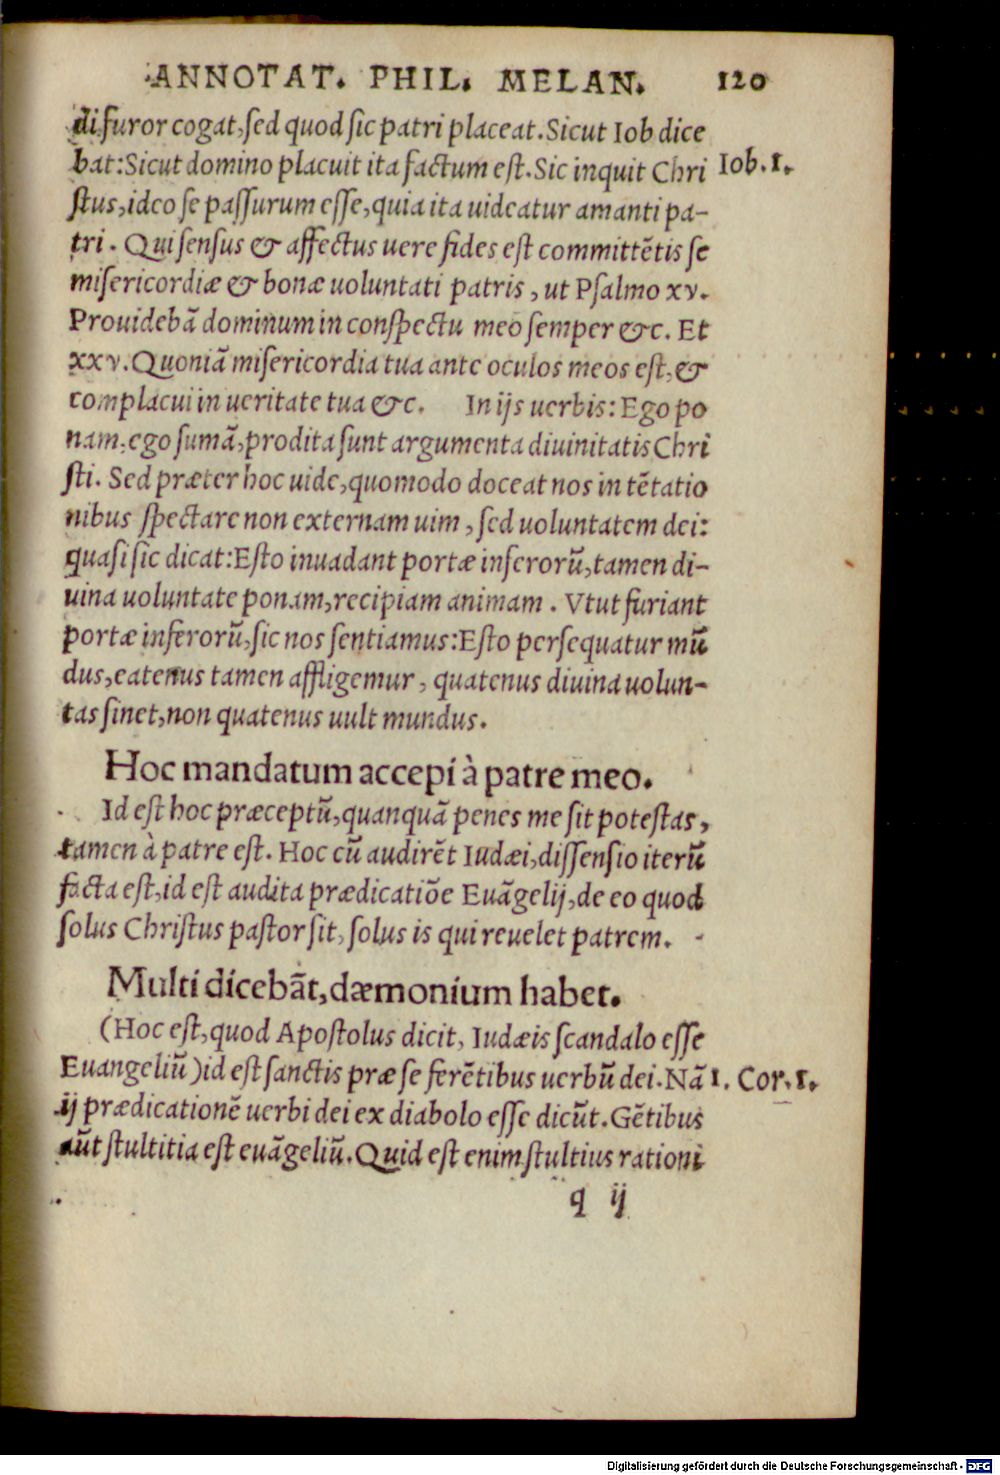 ANNOTAT. PHIL. MELAN. 120
di furor cogat, ſed quod ſic patri placeat. Sicut Iob dice
bat: Sicut domino placuit ita factum eſt. Sic inquit Chri Iob. 1.
ſtus, ideo ſe paſſurum eſſe, quia ita uideatur amanti pa-
tri. Qui ſenſus & affectus uere fides eſt committẽtis ſe
miſericordiæ & bonæ uoluntati patris, ut Pſalmo xv.
Prouidebã dominum in conſpectu meo ſemper &c. Et
xxv. Quoniã miſericordia tua ante oculos meos eſt, &
complacui in ueritate tua &c. In ijs uerbis: Ego po
nam, ego ſumã, prodita ſunt argumenta diuinitatis Chri
ſti. Sed præter hoc uide, quomodo doceat nos in tẽtatio
nibus ſpectare non externam uim, ſed uoluntatem dei:
quaſi ſic dicat: Eſto inuadant portæ inferorũ, tamen di-
uina uoluntate ponam, recipiam animam. Vtut furiant
portæ inferorũ, ſic nos ſentiamus: Eſto perſequatur mũ
dus, eatenus tamen affligemur, quatenus diuina uolun-
tas ſinet, non quatenus uult mundus.
Hoc mandatum accepi à patre meo.
Id eſt hoc præceptũ, quanquã penes me ſit poteſtas,
tamen à patre eſt. Hoc cũ audirẽt Iudæi, diſſenſio iterũ
facta eſt, id eſt audita prædicatiõe Euãgelij, de eo quod
ſolus Chriſtus paſtor ſit, ſolus is qui reuelet patrem.
Multi dicebãt, dæmonium habet.
(Hoc eſt, quod Apoſtolus dicit, Iudæis ſcandalo eſſe
Euangeliũ) id eſt ſanctis præ ſe ferẽtibus uerbũ dei. Nã 1. Cor. 1.
ij prædicationẽ uerbi dei ex diabolo eſſe dicũt. Gẽtibus
aũt ſtultitia eſt euãgeliũ. Quid eſt enim ſtultius rationi
q ij
Digitalisierung gefördert durch die Deutsche Forschungsgemeinschaft - DFG